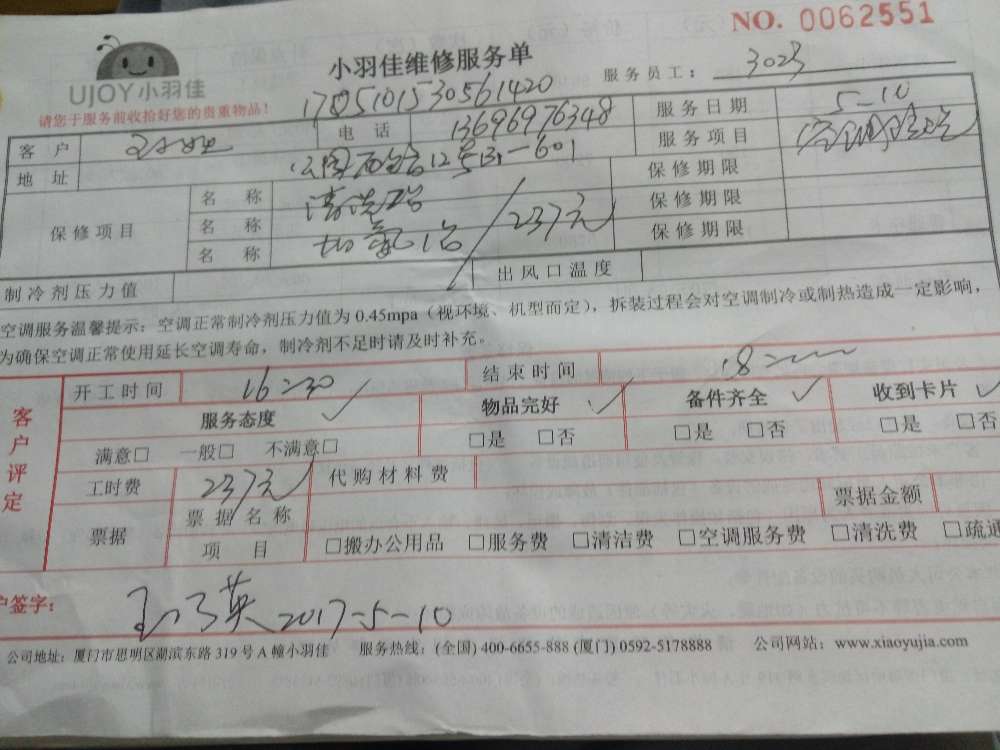 NO. 0062551
UJOY小羽佳
小羽佳维修服务单
服务员工： 3023
请您于服务前收拾好您的贵重物品！
1705101530561420
客 户 电 话 13696976348 服务日期 5-10
地 址 12号 601 服务项目 空调
保修项目 名 称 清洗2台 保修期限
名 称 加氟1台 / 237元 保修期限
名 称 保修期限
制冷剂压力值 出风口温度
空调服务温馨提示：空调正常制冷剂压力值为 0.45mpa（视环境、机型而定），拆装过程会对空调制冷或制热造成一定影响，
为确保空调正常使用延长空调寿命，制冷剂不足时请及时补充。
客户评定
开工时间 16:30 结束时间 18:
服务态度 ✓ 物品完好 ✓ 备件齐全 ✓ 收到卡片 ✓
满意□ 一般□ 不满意□ □是 □否 □是 □否 □是 □否
工时费 237元 代购材料费
票据 票据名称 票据金额
项 目 □搬办公用品 □服务费 □清洁费 □空调服务费 □清洗费 □疏通
户签字： 英 2017-5-10
公司地址：厦门市思明区湖滨东路 319 号 A 幢小羽佳 服务热线：(全国) 400-6655-888 (厦门) 0592-5178888 公司网站：www.xiaoyujia.com